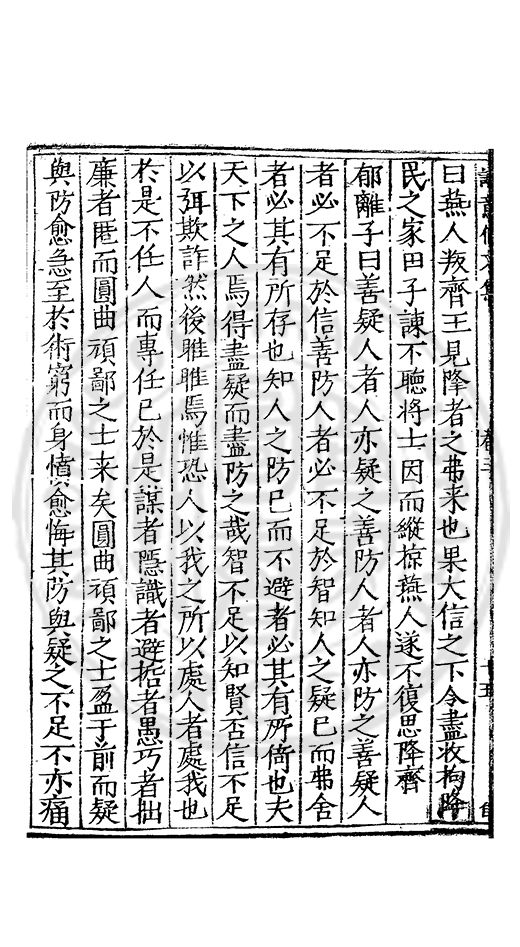 曰燕人叛齊王見降者之弗来也果大信之下令盡收拘降
民之家田子諫不聽將士因而縱掠燕人遂不復思降齊
郁離子曰善疑人者人亦疑之善防人者人亦防之善疑人
者必不足於信善防人者必不足於智知人之疑已而弗舍
者必其有所存也知人之防已而不避者必其有所倚也夫
天下之人焉得盡疑而盡防之哉智不足以知賢否信不足
以弭欺詐然後睢睢焉惟恐人以我之所以處人者處我也
於是不任人而專任已於是謀者隠識者避拓者愚巧者拙
廉者匿而圓曲頑鄙之士来矣圓曲頑鄙之士盈于前而疑
與防愈急至於術窮而身憤愈悔其防與疑之不足不亦痛